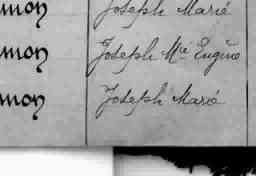 mon Joseph Marie
mon Joseph Mie Eugène
mon Joseph Marie